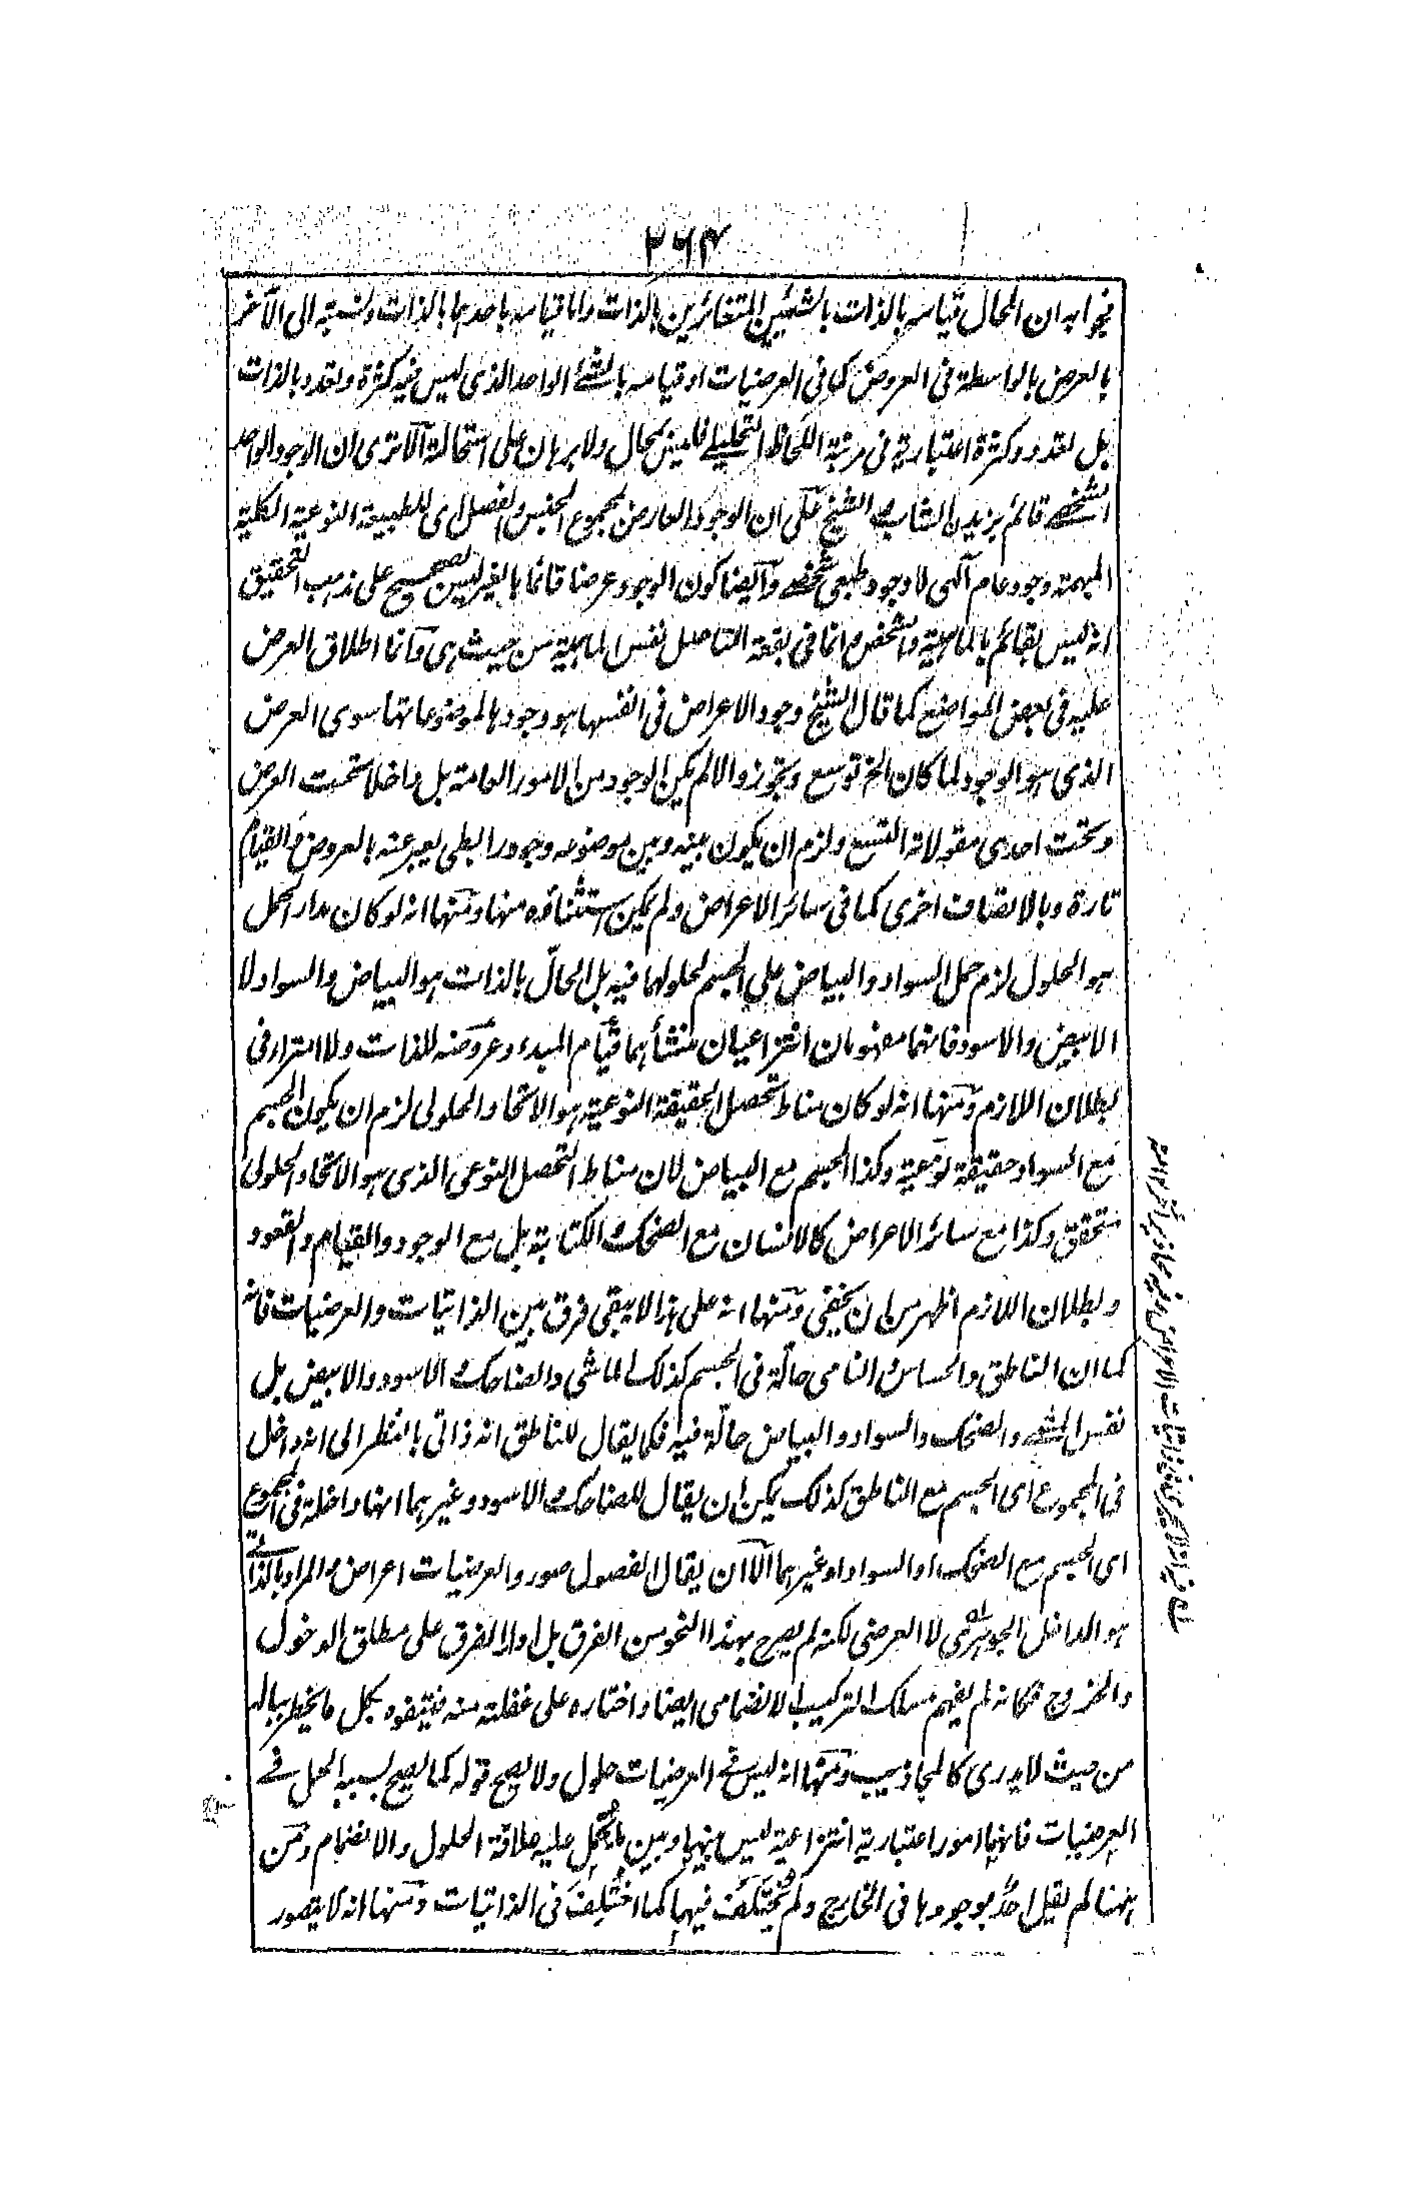 ۲۶۴
فجوابه ان المحال قیامه بالذات بالشیئین المتغائرین بالذات واما قیامه باحدهما بالذات ونسبته الی الآخر
بالعرض بالواسطة فی العروض کما فی العرضیات او قیامه بالشئ الواحد الذی لیس فیه کثرة وتعدد بالذات
بل تعدد وکثرة اعتباریة فی مرتبة اللحاظ التحلیلے فلیس بمحال ولا برهان علی استحالته الا تری ان الوجود الواحد
الشخصے قائم بزید الشاب الشیخ علی ان الوجود العارض لمجموع الجنس والفصل ای للطبیعة النوعیة الکلیة
المبهمة وجود عام آلهی لا وجود طبعی شخصے وایضا کون الوجود عرضا قائما بالغیر لیس بصحیح علی مذهب التحقیق
انه لیس بقائم بالماهیة والتشخص انما فی بقعة التاصل نفس الماهیة من حیث هی واما اطلاق العرض
علیه فی بعض المواضع کما قال الشیخ وجود الاعراض فی انفسها هو وجودها لموضوعاتها سوی العرض
الذی هو الوجود لما کان الخ توسع وتجوز والا لم یکن الوجود من الامور العامة بل داخلا تحت العرض
وتحت احدی مقولاته التسع ولزم ان یکون بینه وبین موضوعه وجود رابطی یعبر عنه بالعروض والقیام
تارة وبالاتصاف اخری کما فی سائر الاعراض ولم یکن استثناؤه منها ومنها انه لو کان مدار الحمل
هو الحلول لزم حمل السواد والبیاض علی الجسم لحلولهما فیه بل الحال بالذات هو البیاض والسواد لا
الابیض والاسود فانهما مفهومان انتزاعیان منشأهما قیام المبدء وعروضه للذات ولا استراز فی
بطلان اللازم ومنها انه لو کان مناط تحصل الحقیقة النوعیة هو الاتحاد الحلولی لزم ان یکون الجسم
مع السواد حقیقة نوعیة وکذا الجسم مع البیاض لان مناط التحصل النوعی الذی هو الاتحاد الحلولی
متحقق وکذا مع سائر الاعراض کالانسان مع الضحک والکتابة بل مع الوجود والقیام والقعود
وبطلان اللازم اظهر من ان یخفی ومنها انه علی هذا لا یبقی فرق بین الذاتیات والعرضیات فانه
کما ان الناطق والحساس والنامی حالّة فی الجسم کذلک الماشی والضاحک والاسود والابیض بل
نفس المشے والضحک والسواد والبیاض حالّة فیه فکما یقال للناطق انه ذاتی بالنظر الی انه داخل
فی المجموع ای الجسم مع الناطق کذلک یمکن ان یقال للضاحک والاسود وغیرهما انها داخلة فی المجموع
ای الجسم مع الضحک او السواد او غیرهما الا ان یقال الفصول صور والعرضیات اعراض والمراد بالذاتے
هو الداخل الجوهری لا العرضی لکنه لم یصرح بهذا النحو من الفرق بل ادار الفرق علی مطلق الدخول
والخروج فکانه لم یفهم مسلک الترکیب الانضمامی ایضا واختاره علی غفلته منه فیتفوه بکل ما یخطر بباله
من حیث لا یدری کالمجاذیب ومنها انه لیس فے العرضیات حلول ولا یصح قوله کما یصح بسببه الحمل فے
العرضیات فانها امور اعتباریة انتزاعیة لیس بینها وبین ما یحمل علیه علاقة الحلول والانضمام ومن
ههنا لم یقل احد بوجودها فی الخارج ولم یختلف فیها کما اختلف فی الذاتیات ومنها انه لا یتصور